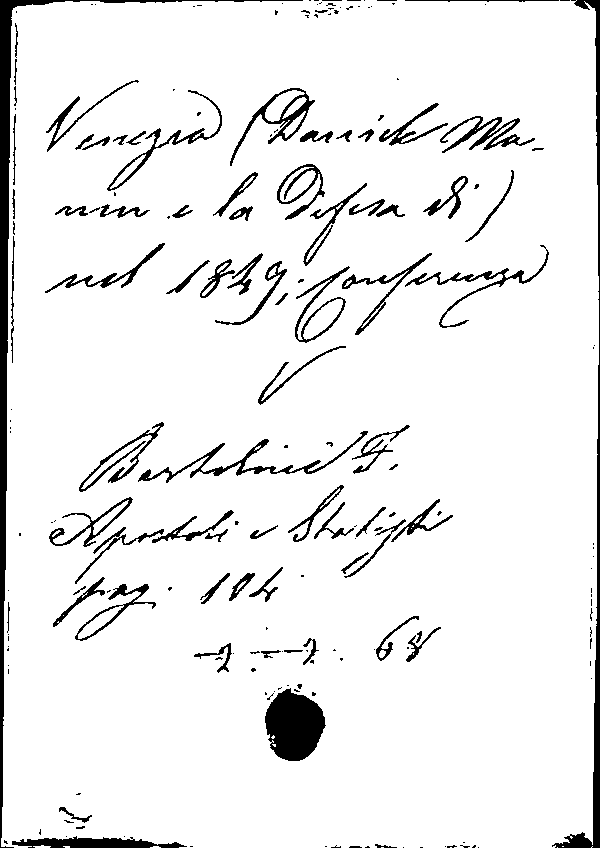 Venezia (Daniele Ma-
nin e la Difesa di)
nel 1849; Conferenza
V
Bartolini F.
Apostoli e Statisti
pag. 104
68